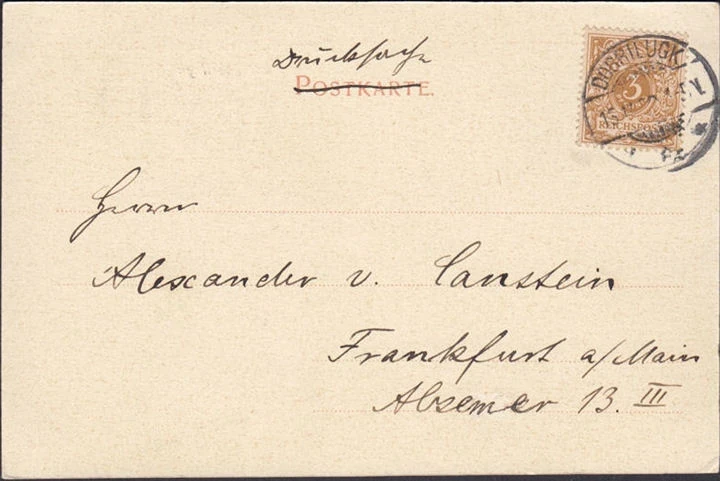 Drucksache
POSTKARTE.
DOBRILUGK
3
REICHSPOST
Herrn
Alexander v. Canstein
Frankfurt a/Main
Absemer 13. III